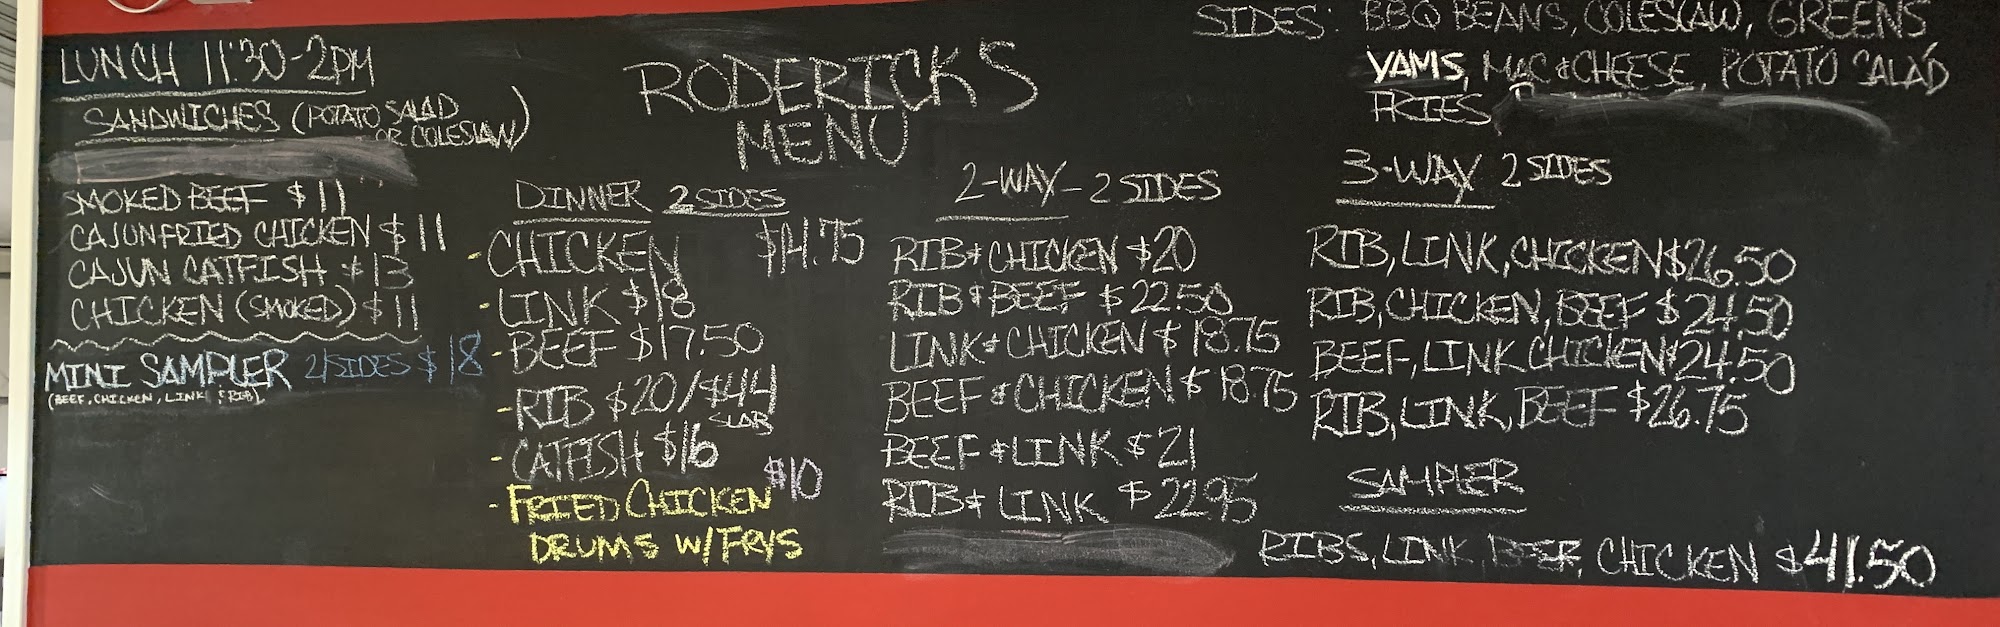 LUNCH 11:30-2PM
SANDWICHES (POTATO SALAD
OR COLESLAW)
SMOKED BEEF $11
CAJUN FRIED CHICKEN $11
CAJUN CATFISH $13
CHICKEN (SMOKED) $11
MINI SAMPLER 2/SIDES $18
(BEEF, CHICKEN, LINK & RIB)
RODERICK'S
MENU
DINNER 2 SIDES
- CHICKEN $14.75
- LINK $18
- BEEF $17.50
- RIB $20/$44
SLAB
- CATFISH $16
- FRIED CHICKEN $10
DRUMS W/FRYS
2-WAY - 2 SIDES
RIB & CHICKEN $20
RIB & BEEF $22.50
LINK & CHICKEN $18.75
BEEF & CHICKEN $18.75
BEEF & LINK $21
RIB & LINK $22.95
SIDES: BBQ BEANS, COLESLAW, GREENS
YAMS, MAC & CHEESE, POTATO SALAD
FRIES
3-WAY 2 SIDES
RIB, LINK, CHICKEN $26.50
RIB, CHICKEN, BEEF $24.50
BEEF, LINK CHICKEN $24.50
RIB, LINK, BEEF $26.75
SAMPLER
RIBS, LINK, BEEF, CHICKEN $41.50